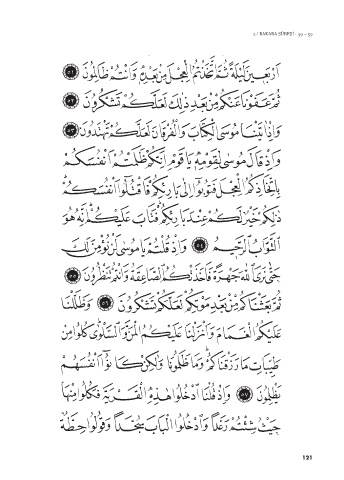 2 / BAKARA SÛRESİ · 51 – 59
اَرْبَع۪ينَ لَيْلَةً ثُمَّ اتَّخَذْتُمُ الْعِجْلَ مِنْ بَعْدِه۪ وَاَنْتُمْ ظَالِمُونَ ﴿٥١﴾
ثُمَّ عَفَوْنَا عَنْكُمْ مِنْ بَعْدِ ذٰلِكَ لَعَلَّكُمْ تَشْكُرُونَ ﴿٥٢﴾
وَاِذْ اٰتَيْنَا مُوسَى الْكِتَابَ وَالْفُرْقَانَ لَعَلَّكُمْ تَهْتَدُونَ ﴿٥٣﴾
وَاِذْ قَالَ مُوسٰى لِقَوْمِه۪ يَا قَوْمِ اِنَّكُمْ ظَلَمْتُمْ اَنْفُسَكُمْ
بِاتِّخَاذِكُمُ الْعِجْلَ فَتُوبُٓوا اِلٰى بَارِئِكُمْ فَاقْتُلُٓوا اَنْفُسَكُمْۜ
ذٰلِكُمْ خَيْرٌ لَكُمْ عِنْدَ بَارِئِكُمْ فَتَابَ عَلَيْكُمْۜ اِنَّهُ هُوَ
التَّوَّابُ الرَّح۪يمُ ﴿٥٤﴾ وَاِذْ قُلْتُمْ يَا مُوسٰى لَنْ نُؤْمِنَ لَكَ
حَتّٰى نَرَى اللّٰهَ جَهْرَةً فَاَخَذَتْكُمُ الصَّاعِقَةُ وَاَنْتُمْ تَنْظُرُونَ ﴿٥٥﴾
ثُمَّ بَعَثْنَاكُمْ مِنْ بَعْدِ مَوْتِكُمْ لَعَلَّكُمْ تَشْكُرُونَ ﴿٥٦﴾ وَظَلَّلْنَا
عَلَيْكُمُ الْغَمَامَ وَاَنْزَلْنَا عَلَيْكُمُ الْمَنَّ وَالسَّلْوٰىۜ كُلُوا مِنْ
طَيِّبَاتِ مَا رَزَقْنَاكُمْۜ وَمَا ظَلَمُونَا وَلٰكِنْ كَانُٓوا اَنْفُسَهُمْ
يَظْلِمُونَ ﴿٥٧﴾ وَاِذْ قُلْنَا ادْخُلُوا هٰذِهِ الْقَرْيَةَ فَكُلُوا مِنْهَا
حَيْثُ شِئْتُمْ رَغَداً وَادْخُلُوا الْبَابَ سُجَّداً وَقُولُوا حِطَّةٌ
121